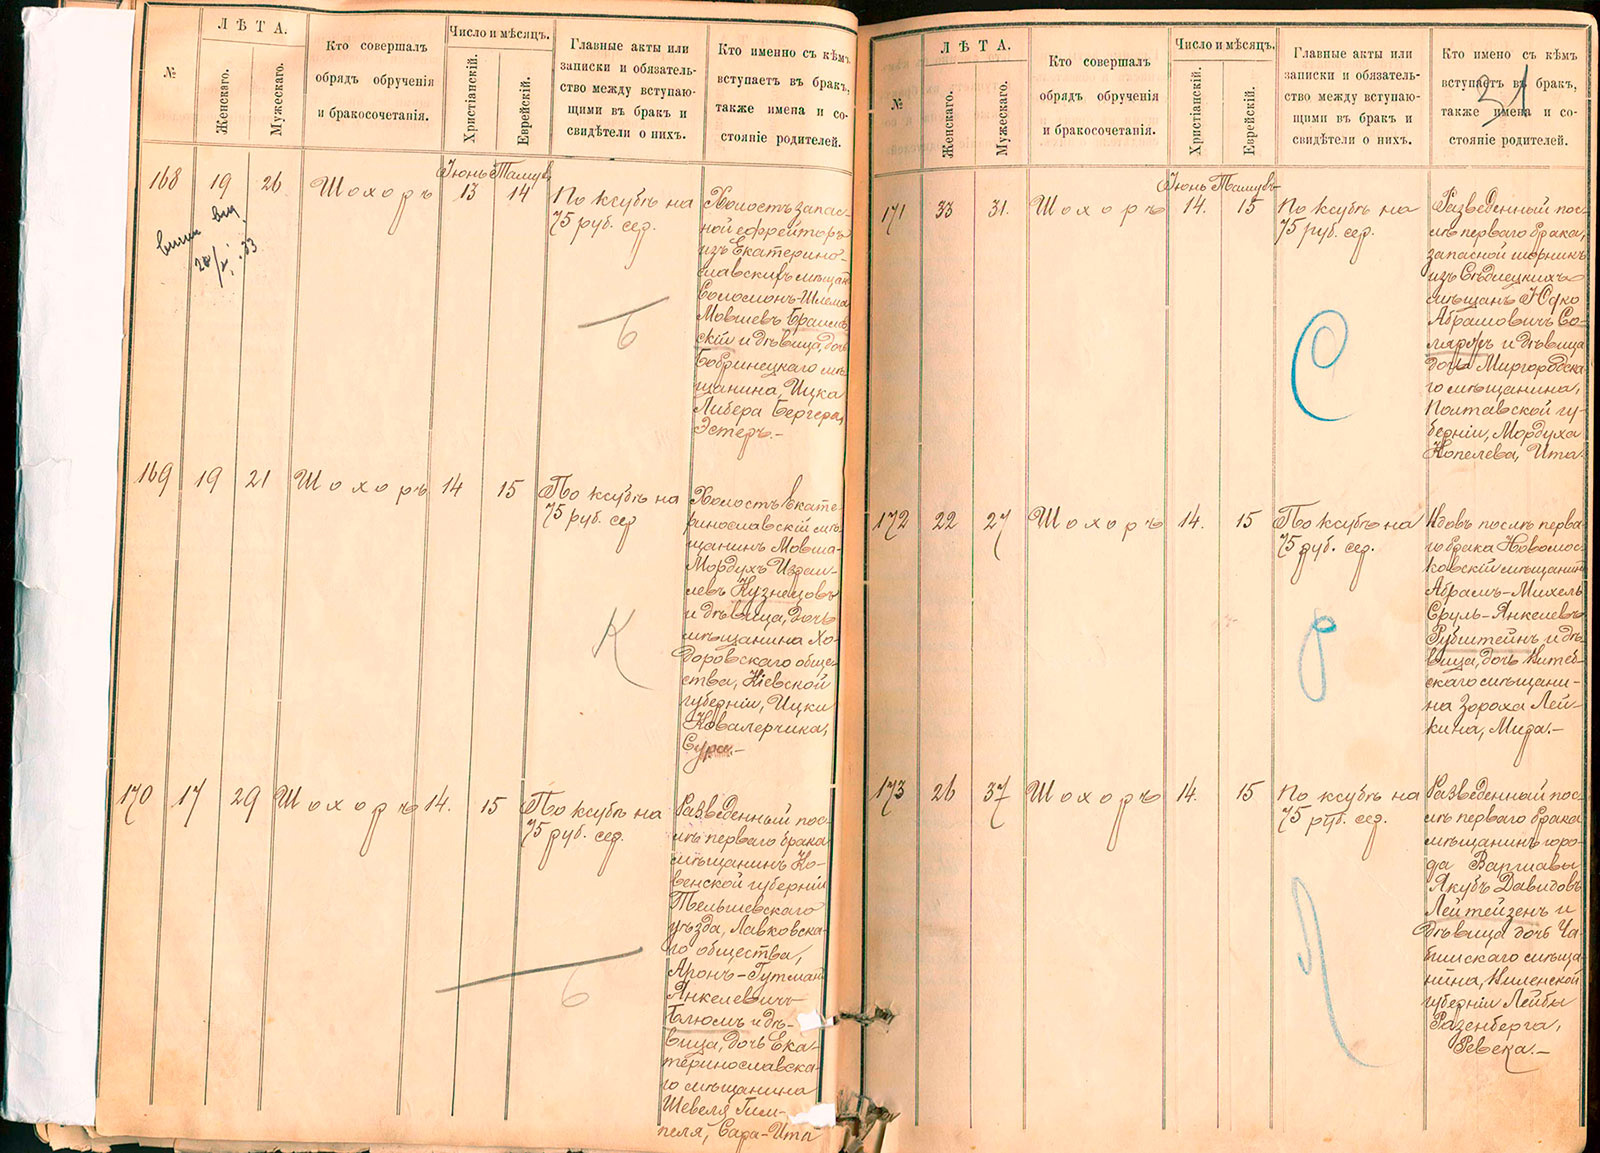 ЛѢТА.
№
Женскаго.
Мужескаго.
Кто совершалъ
обрядъ обрученія
и бракосочетанія.
Число и мѣсяцъ.
Христіанскій.
Еврейскій.
Главные акты или
записки и обязатель-
ство между вступаю-
щими въ бракъ и
свидѣтели о нихъ.
Кто именно съ кѣмъ
вступаетъ въ бракъ,
также имена и со-
стояніе родителей.
168
19
26
Шохоръ
Іюнь
13
Тамузъ
14
По ксубѣ на
75 руб. сер.
Холостъ запас-
ной ефрейторъ
изъ Екатерино-
славскихъ мѣщан
Соломонъ-Шлема
Мовшевъ Браилов
скій и дѣвица, дочь
Бобринецкаго мѣ-
щанина, Ицка
Либера Бергера,
Эстеръ.-
Б
169
19
21
Шохоръ
14
15
По ксубѣ на
75 руб. сер
Холостъ Екате-
ринославскій мѣ-
щанинъ Мовша-
Мордухъ Израи-
левъ Кузнецовъ
и дѣвица, дочь
мѣщанина Хо-
доровскаго обще-
ства, Кіевской
губерніи, Ицки
Ковалерчика,
Сура.-
К
170
17
29
Шохоръ
14.
15
По ксубѣ на
75 руб. сер.
Разведенный пос-
лѣ перваго брака
мѣщанинъ Ко-
венской губерніи
Тельшевскаго
уѣзда, Лавковска-
го общества,
Аронъ-Гутман
Янкелевичъ
Блюмъ и дѣ-
вица, дочь Ека-
теринославска-
го мѣщанина
Шевеля Гим-
пеля, Сара-Ита
Б
ЛѢТА.
№
Женскаго.
Мужескаго.
Кто совершалъ
обрядъ обрученія
и бракосочетанія.
Число и мѣсяцъ.
Христіанскій.
Еврейскій.
Главные акты или
записки и обязатель-
ство между вступаю-
щими въ бракъ и
свидѣтели о нихъ.
Кто имено съ кѣмъ
вступаетъ въ бракъ,
также имена и со-
стояніе родителей.
51
171
33
31.
Шохоръ
Іюнь
14.
Тамузъ
15
По ксубѣ на
75 руб. сер.
Разведенный пос-
лѣ перваго брака,
запасной шорникъ
изъ Сѣдлецкихъ
мѣщанъ Юдко
Абрамовичъ Со-
ляръ и дѣвица
дочь Миргородска-
го мѣщанина,
Полтавской гу-
берніи, Мордуха
Копелева, Ита
С
172
22
27
Шохоръ
14.
15
По ксубѣ на
75 руб. сер.
Вдовъ послѣ перва-
го брака Новомос-
ковскій мѣщанин
Абрамъ-Михель
Сруль-Янкелевъ
Рубштейнъ и дѣ-
вица, дочь Витеб-
скаго мѣщани-
на Зороха Лей-
кина, Мира.-
Р
173
26
37
Шохоръ
14.
15
По ксубѣ на
75 руб. сер.
Разведенный пос-
лѣ перваго брака
мѣщанинъ горо-
да Варшавы
Якубъ Давидовъ
Лейтейзенъ и
дѣвица дочь Ча-
бишскаго мѣща-
нина, Виленской
губерніи Лейбы
Разенберга,
Ревека.-
Л